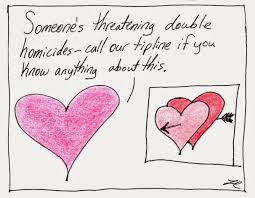 Someone's threatening double
homicides - call our tipline if you
know anything about this.